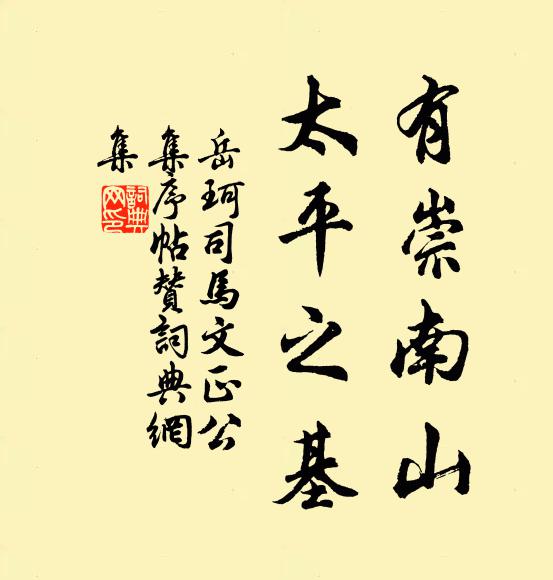 有崇南山
太平之基
岳珂司馬文正公
集序帖贊詞典網
集
詞典
网印